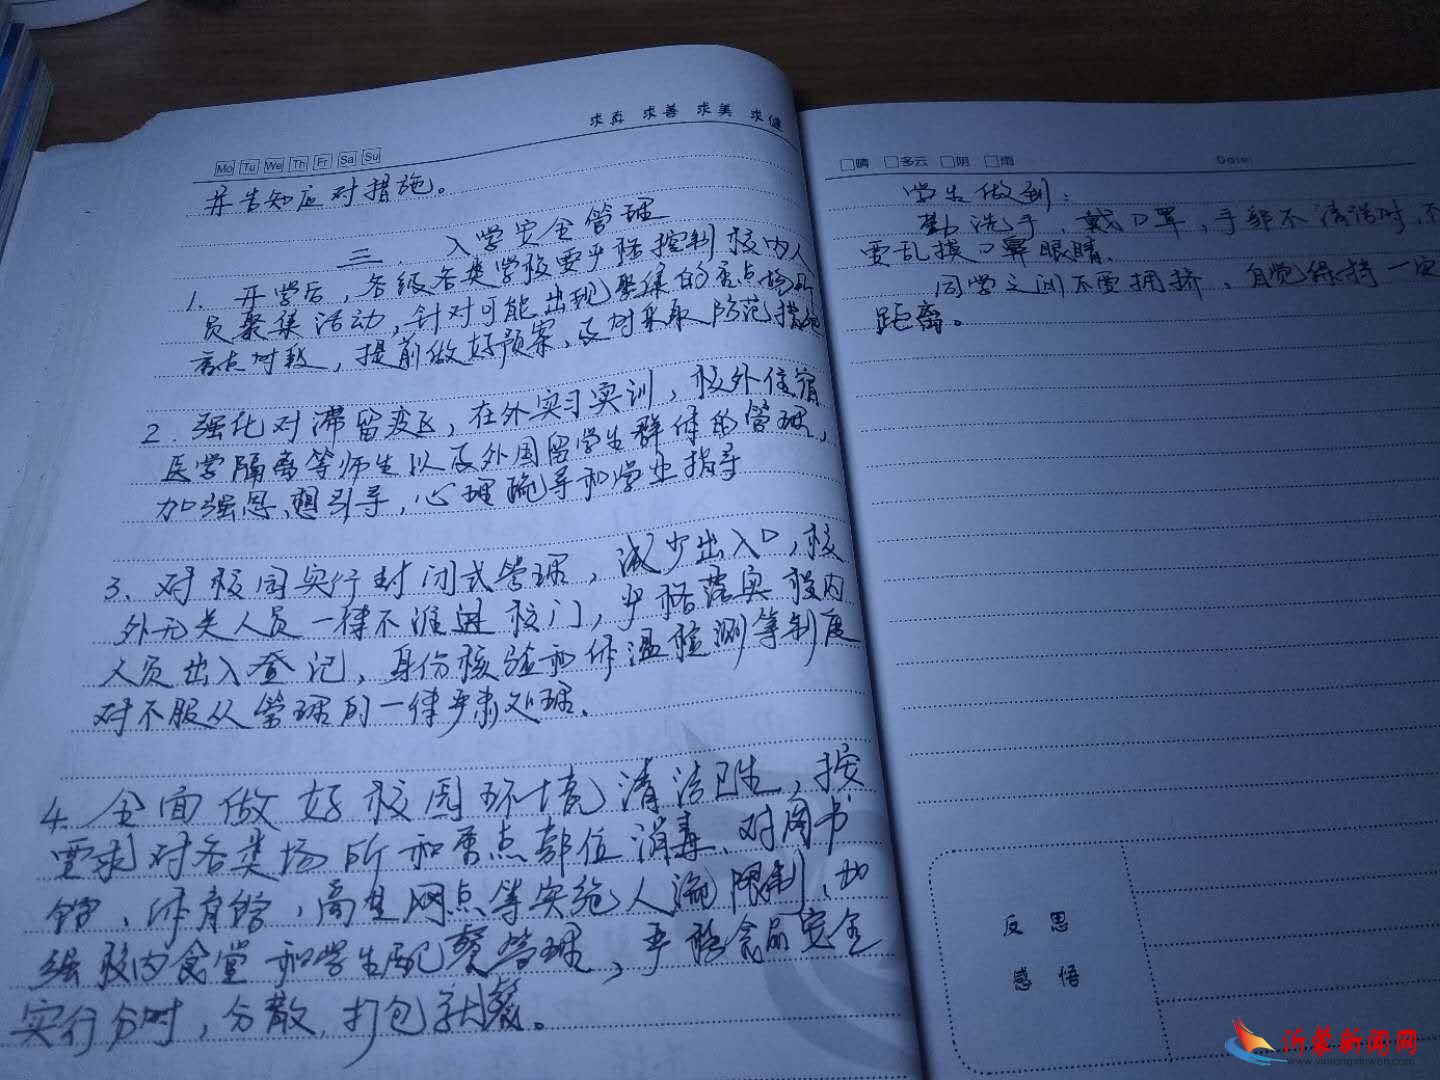 求真 求善 求美 求健
Mo Tu We Th Fr Sa Su
并告知应对措施。
三. 入学安全管理
1. 开学后，各级各类学校要严格控制校内人
员聚集活动，针对可能出现聚集的重点场所
重点时段，提前做好预案，及时采取防范措施
2. 强化对滞留疫区，在外实习实训，校外住宿
医学隔离等师生以及外国留学生群体的管理，
加强思想引导，心理疏导和学业指导
3、对校园实行封闭式管理，减少出入口，校
外无关人员一律不准进校门，严格落实校内
人员出入登记，身份核验和体温检测等制度
对不服从管理的一律严肃处理.
4. 全面做好校园环境清洁卫生，按
要求对各类场所和重点部位消毒、对图书
馆、体育馆，商业网点等实施人流限制，加
强校内食堂和学生配餐管理，严格食品安全
实行分时，分散，打包就餐。
晴 多云 阴 雨 Date:
学生做到：
勤洗手，戴口罩，手部不清洁时，不
要乱摸口鼻眼睛.
同学之间不要拥挤，自觉保持一定
距离。
反思
感悟
沂蒙新闻网
www.yimengxinwen.com